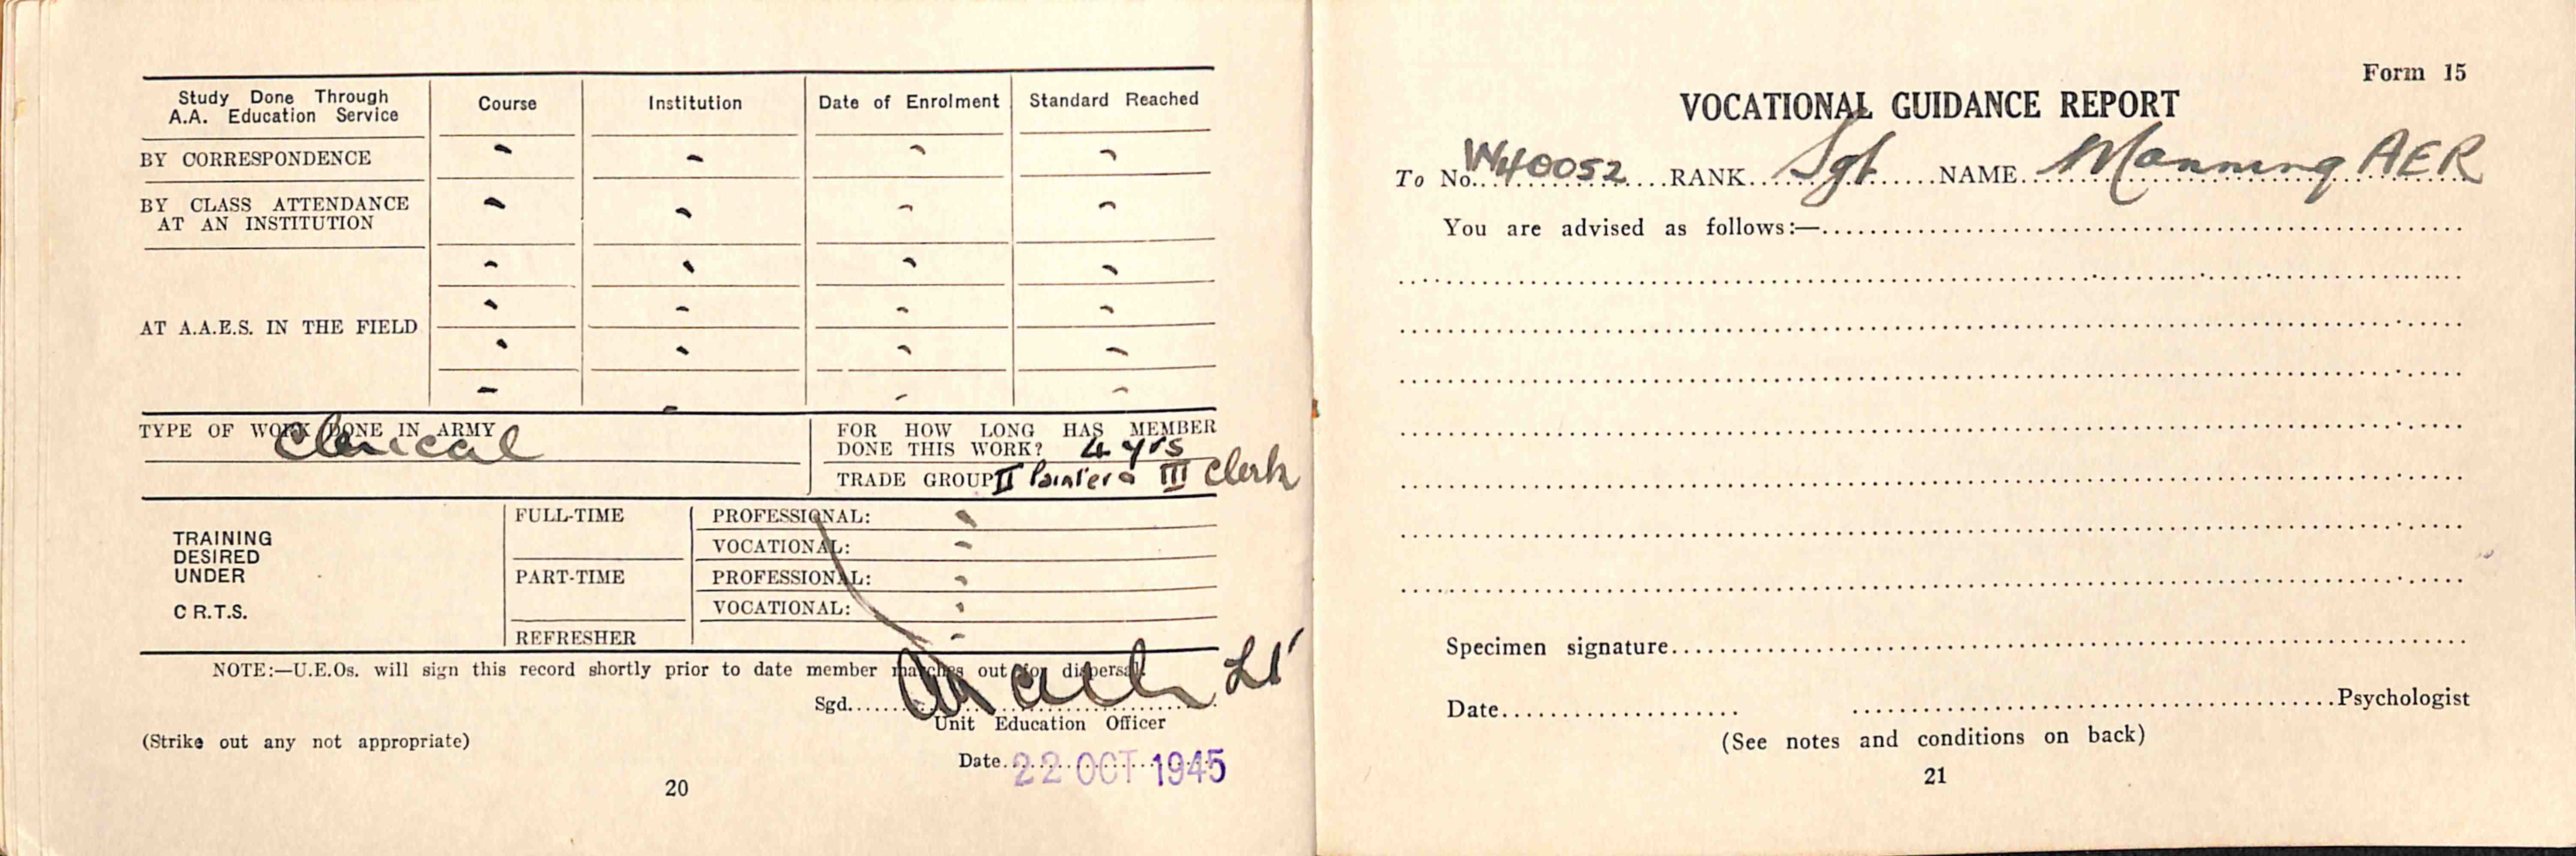 Study Done Through A.A. Education Service | Course | Institution | Date of Enrolment | Standard Reached
BY CORRESPONDENCE - - - -
BY CLASS ATTENDANCE AT AN INSTITUTION - - - -
AT A.A.E.S. IN THE FIELD - - - -
- - - -
- - - -
- - - -
TYPE OF WORK DONE IN ARMY Clerical
FOR HOW LONG HAS MEMBER
DONE THIS WORK? 4 yrs
TRADE GROUP II Painter III Clerk
TRAINING DESIRED UNDER C R.T.S.
FULL-TIME PROFESSIONAL: -
VOCATIONAL: -
PART-TIME PROFESSIONAL: -
VOCATIONAL: -
REFRESHER -
NOTE:—U.E.Os. will sign this record shortly prior to date member marches out for dispersal.
Sgd. Lt
Unit Education Officer
(Strike out any not appropriate)
Date 22 OCT 1945
20
Form 15
VOCATIONAL GUIDANCE REPORT
To No. W40052 RANK Sgt NAME Manning AER
You are advised as follows:—
Specimen signature
Date Psychologist
(See notes and conditions on back)
21